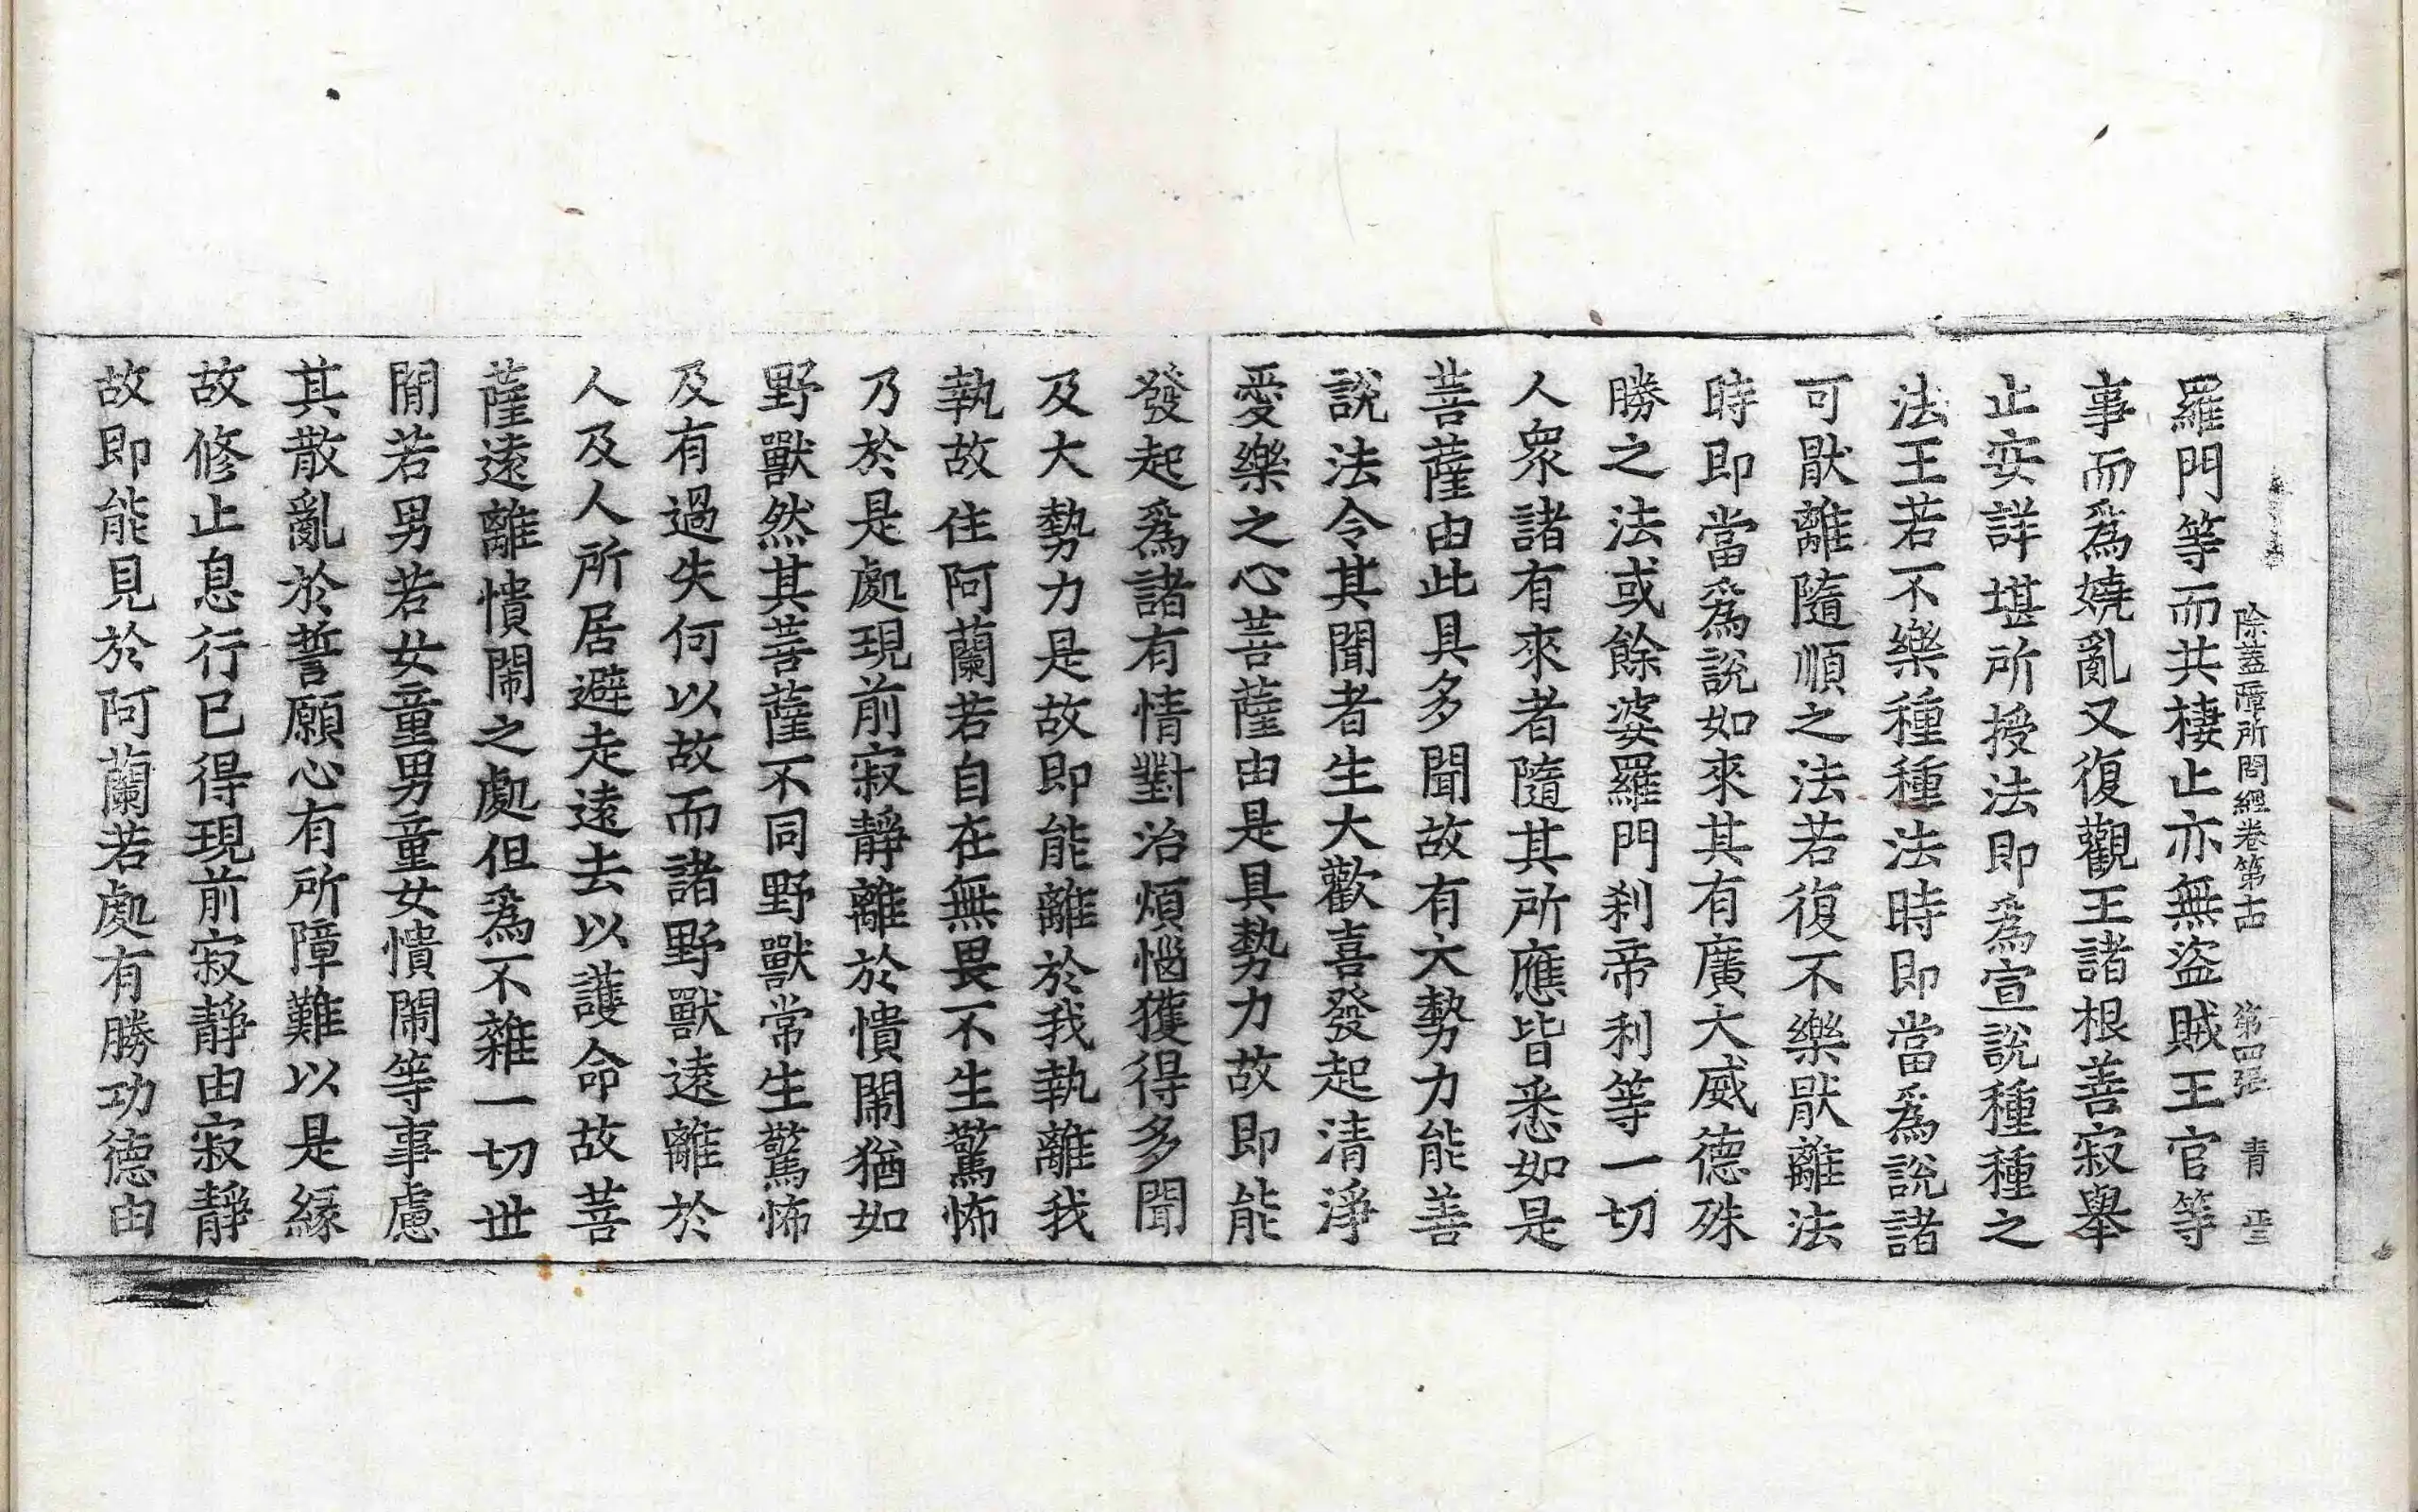 除蓋障所問經卷第十四 第四張 青
羅門等而共棲止亦無盜賊王官等
事而為嬈亂又復觀王諸根善寂舉
止安詳堪所授法即為宣說種種之
法王若不樂種種法時即當為說諸
可猒離隨順之法若復不樂猒離法
時即當為說如來其有廣大威德殊
勝之法或餘婆羅門剎帝利等一切
人眾諸有來者隨其所應皆悉如是
菩薩由此具多聞故有大勢力能善
說法令其聞者生大歡喜發起清淨
愛樂之心菩薩由是具勢力故即能
發起為諸有情對治煩惱獲得多聞
及大勢力是故即能離於我執離我
執故住阿蘭若自在無畏不生驚怖
乃於是處現前寂靜離於憒閙猶如
野獸然其菩薩不同野獸常生驚怖
及有過失何以故而諸野獸遠離於
人及人所居避走遠去以護命故菩
薩遠離憒閙之處但為不雜一切世
間若男若女童男童女憒閙等事慮
其散亂於誓願心有所障難以是緣
故修止息行已得現前寂靜由寂靜
故即能見於阿蘭若處有勝功德由